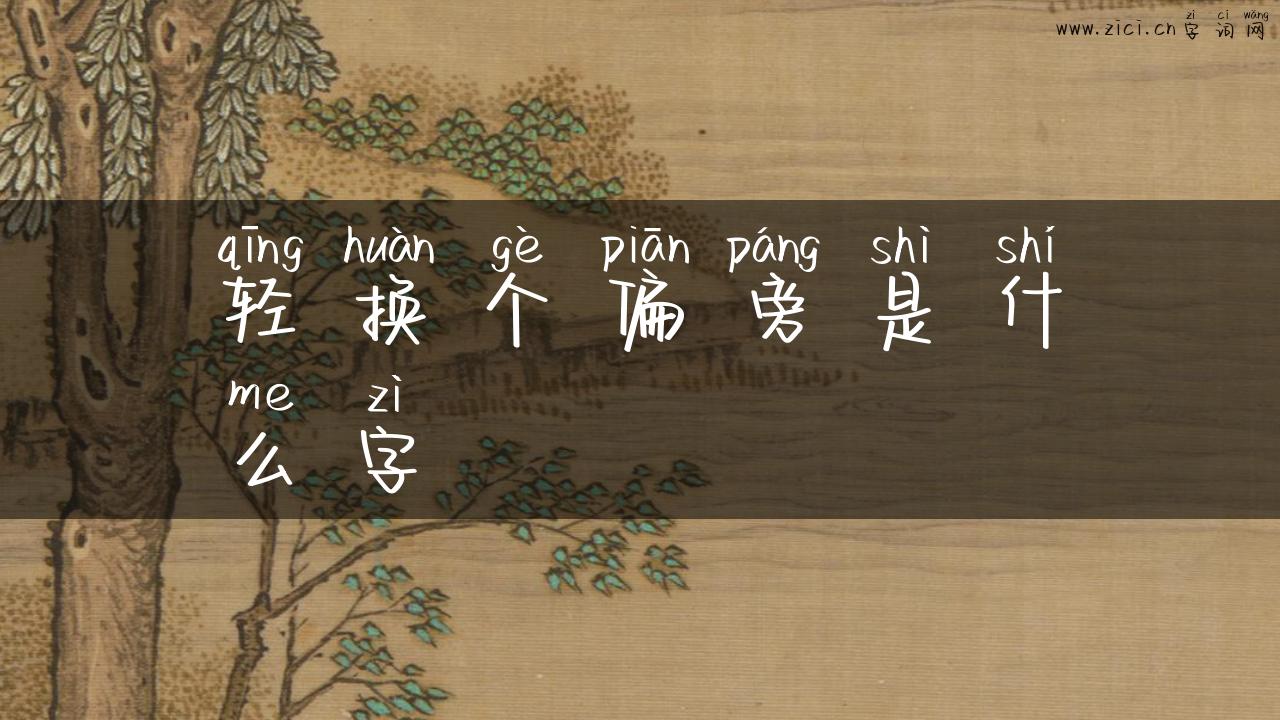 zì cí wǎng
www.zici.cn 字词网
qīng huàn gè piān páng shì shí
轻换个偏旁是什
me zì
么字